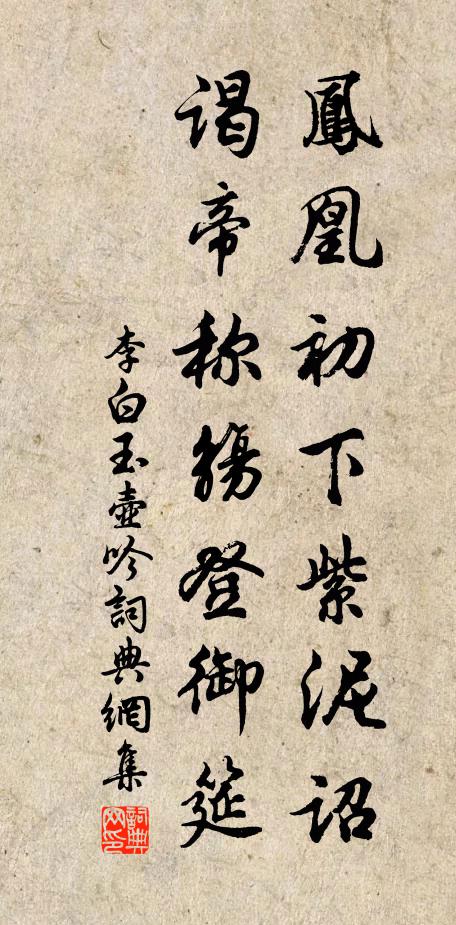 鳳凰初下紫泥詔
謁帝称觴登御筵
李白玉壺吟詞典網集
詞典網印